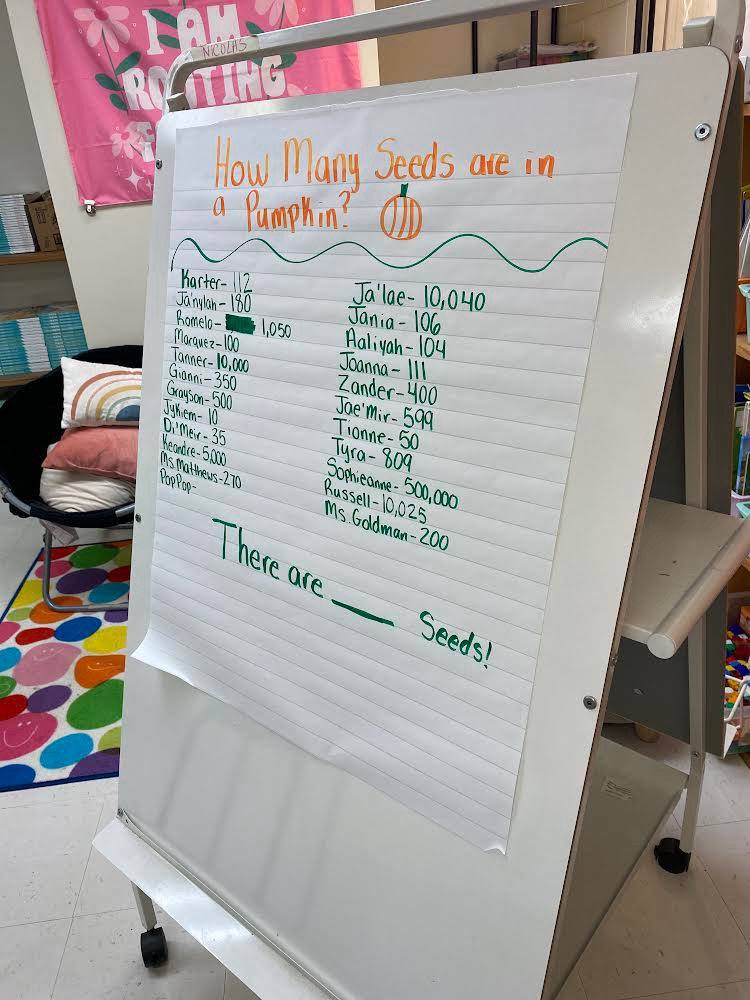 I AM
ROOTING
NICOLAS
How Many Seeds are in
a Pumpkin?
Karter- 112
Ja'nylah- 180
Romelo- 1,050
Marquez- 100
Tanner- 10,000
Gianni- 350
Grayson- 500
Jykiem- 10
Di'Meir- 35
Keandre- 5,000
Ms. Matthews- 270
PopPop-
Ja'lae- 10,040
Jania- 106
Aaliyah- 104
Joanna- 111
Zander- 400
Jae'Mir- 599
Tionne- 50
Tyra- 809
Sophieanne- 500,000
Russell- 10,025
Ms. Goldman- 200
There are ____ Seeds!